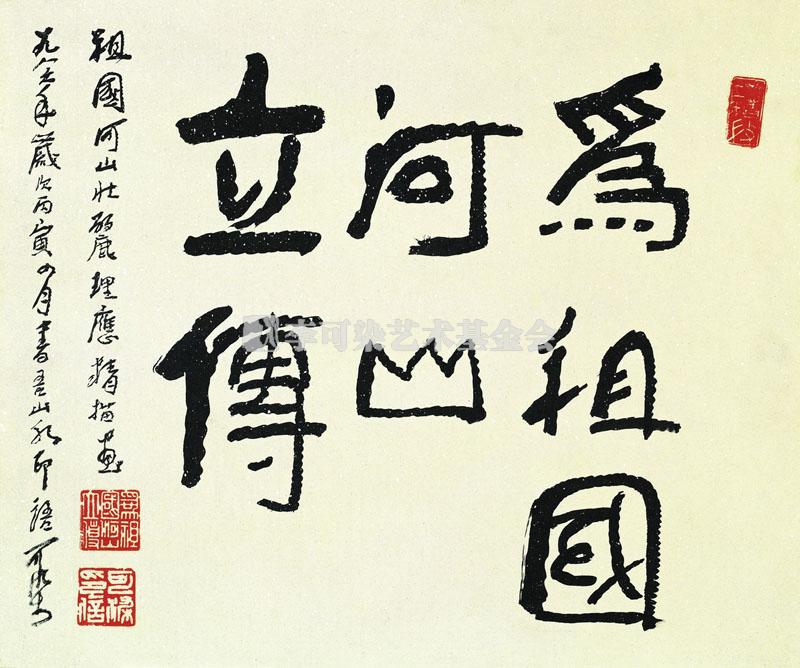 為祖國
河山
立傳
祖國河山壯麗理應精描畫
一九八六年歲次丙寅四月書吾山水印語可染
李可染艺术基金会
為祖國河山立傳